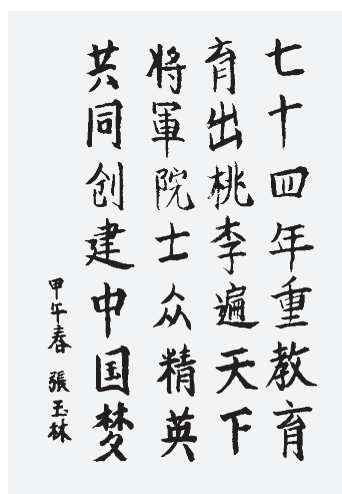 七十四年重教育
育出桃李遍天下
將軍院士众精英
共同创建中国梦
甲午春 張玉林